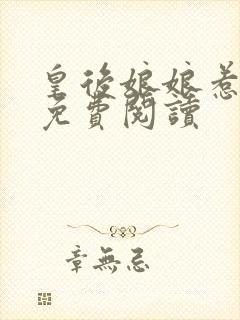 皇後娘娘惹
免費閱讀
章無忌